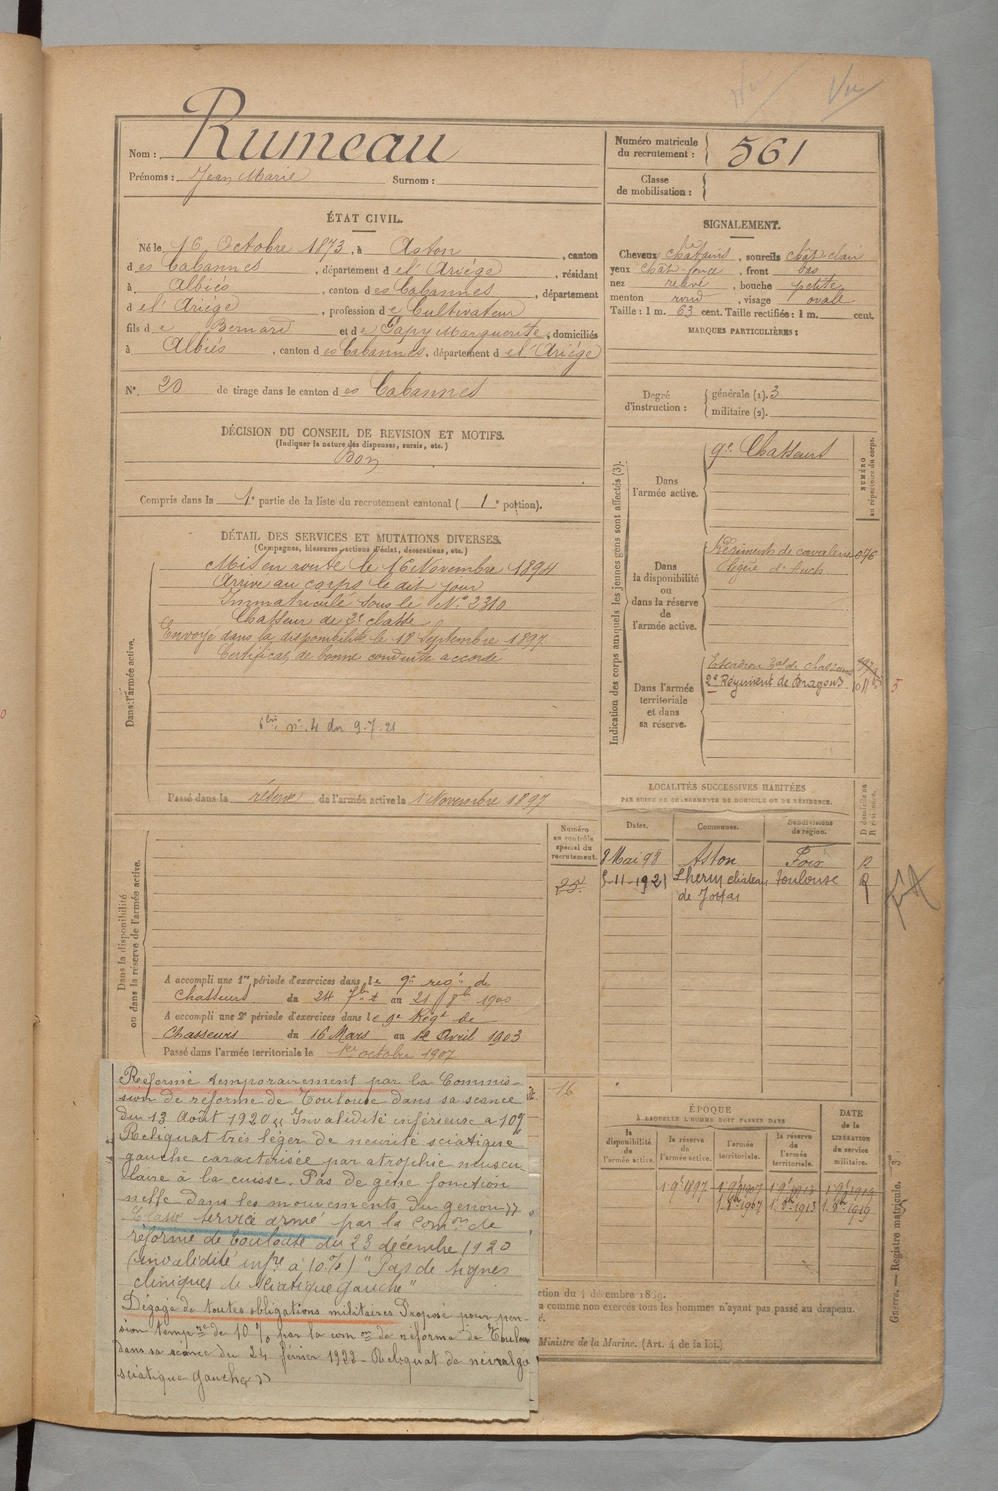 Vu
Nom : Rumeau
Prénoms : Jean Marie Surnom :
Numéro matricule
du recrutement : 561
Classe
de mobilisation :
ÉTAT CIVIL.
Né le 16 Octobre 1873, à Aston, canton
d es Cabannes, département d e l'Ariége, résidant
à Albiés, canton d es Cabannes, département
d e l'Ariége, profession d e Cultivateur
fils d e Bernard et d e Gapy Marguerite, domiciliés
à Albiés, canton d es Cabannes, département d e l'Ariége
N° 20 de tirage dans le canton d es Cabannes
SIGNALEMENT.
Cheveux châtains, sourcils chât clair
yeux chât foncé, front bas
nez relevé, bouche petite
menton rond, visage ovale
Taille : 1 m. 63 cent. Taille rectifiée : 1 m. cent.
MARQUES PARTICULIÈRES :
Degré
d'instruction :
générale (1). 3
militaire (2).
DÉCISION DU CONSEIL DE REVISION ET MOTIFS.
(Indiquer la nature des dispenses, sursis, etc.)
Bon
Compris dans la 1e partie de la liste du recrutement cantonal ( 1e portion).
DÉTAIL DES SERVICES ET MUTATIONS DIVERSES.
(Campagnes, blessures, actions d'éclat, décorations, etc.)
Dans l'armée active.
Mis en route le 16 Novembre 1894
Arrivé au corps le dit jour
Immatriculé sous le N° 2310
Chasseur de 2e classe
Envoyé dans la disponibilité le 18 Septembre 1897
Certificat de bonne conduite accordé
n° 4 du 9-7-21
Passé dans la réserve de l'armée active le 1 Novembre 1897
Indication des corps auxquels les jeunes gens sont affectés (3).
NUMÉRO
au répertoire du corps.
Dans
l'armée active.
9e Chasseurs
Dans
la disponibilité
ou
dans la réserve
de
l'armée active.
Régiments de cavalerie 076
légère d'Auch
Dans l'armée
territoriale
et dans
sa réserve.
Escadron Ral de chasseurs
2e Régiment de Dragons
5
LOCALITÉS SUCCESSIVES HABITÉES
PAR SUITE DE CHANGEMENTS DE DOMICILE OU DE RÉSIDENCE.
D domicile ou
R résidence.
Dates. Communes. Subdivisions
de région.
8 Mai 98 Aston Foix R
5-11-1921 Lherm château Toulouse R
de Jottas
Numéro
au contrôle
spécial du
recrutement.
25
Dans la disponibilité
ou dans la réserve de l'armée active.
A accompli une 1re période d'exercices dans le 9e reg. de
Chasseurs du 24 7bre au 21 8bre 1900
A accompli une 2e période d'exercices dans le 9e Régt de
Chasseurs du 16 Mars au 12 Avril 1903
Passé dans l'armée territoriale le 1er octobre 1907
16
Réformé temporairement par la Commis-
sion de réforme de Toulouse dans sa séance
du 13 Août 1920 « Invalidité inférieure a 10%
Reliquat très léger de neurite sciatique
gauche caractérisée par atrophie muscu
laire à la cuisse. Pas de gêne fonction
nelle dans les mouvements du genou »
Classé service armé par la Comon de
réforme de Toulouse du 23 décembre 1920
(invalidité infre a 10%) "Pas de signes
cliniques de sciatique gauche"
Dégagé de toutes obligations militaires Proposé pour pen-
sion tempre de 10% par la com on de réforme de Toulouse
dans sa séance du 24 février 1922 - Reliquat de névralgie
sciatique gauche »
ÉPOQUE
À LAQUELLE L'HOMME DOIT PASSER DANS
DATE
de la
LIBÉRATION
du service
militaire.
la
disponibilité
de
l'armée active.
la réserve
de
l'armée active.
l'armée
territoriale.
la réserve
de
l'armée
territoriale.
1 9bre 1897 1 9bre 1907 1 9bre 1913 1 9bre 1919
1. 8bre 1907 1. 8bre 1913 1. 8bre 1919
ction du 4 décembre 1889.
a comme non exercés tous les hommes n'ayant pas passé au drapeau.
Ministre de la Marine. (Art. 4 de la loi.)
Guerre. — Registre matricule. — 3°.